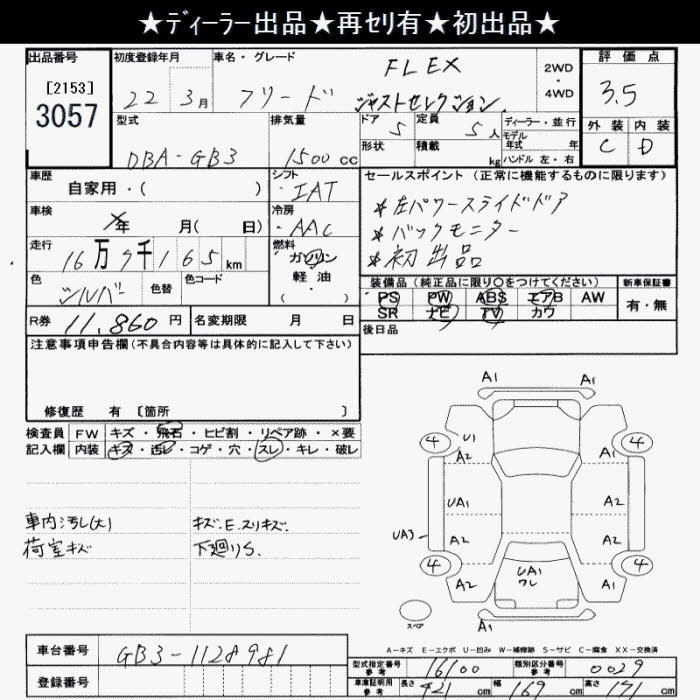 ★ディーラー出品★再セリ有★初出品★
出品番号 [2153] 3057
初度登録年月 22 3月
車名・グレード FLEX
フリード ジャストセレクション
2WD・4WD
評価点 3.5
型式 DBA-GB3
排気量 1500 cc
ドア 5
定員 5 人
形状
積載 kg
ディーラー・並行
モデル年式 年
ハンドル 左・右
外装 C
内装 D
車歴 自家用・( )
シフト ・IAT
セールスポイント (正常に機能するものに限ります)
*左パワースライドドア
*バックモニター
*初出品
車検 年 月( 日)
冷房 ・AAC
走行 16万7千165km
燃料 ガソリン 軽油 ・( )
色 シルバー
色替
色コード
装備品 (純正品に限り〇をつけてください)
PS PW ABS エアB AW
SR ナビ TV カワ
新車保証書 有・無
R券 11,860 円
名変期限 月 日
後日品
注意事項申告欄(不具合内容等は具体的に記入して下さい)
修復歴 有 [箇所 ]
検査員記入欄
FW キズ・飛石・ヒビ割・リペア跡・×要
内装 キズ・汚レ・コゲ・穴・スレ・キレ・破レ
車内汚レ(大)
荷室キズ
キズ.E.スリキズ.
下廻りS.
A1 A1
4 U1 4
A2 A2
UA1 A2
UA3 A2 A2
4 UA1 4
A2 ワレ A2
スペア
A1
A-キズ E-エクボ U-凹み W-補修跡 S-サビ C-腐食 XX-交換済
車台番号 GB3-1128981
登録番号
型式指定番号 参考 16100
類別区分番号 参考 0029
車庫証明用 参考 長さ 421 cm 幅 169 cm 高さ 171 cm